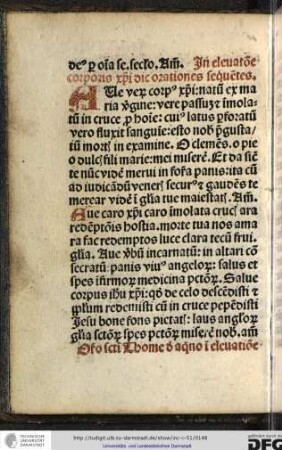 de⁹ ꝑ oĩa se. secło. Am̃. In eleuatōe
corporis xp̃i dic orationes sequẽtes.
AUe verꝝ corp⁹ xp̃i: natũ ex ma
ria ꝟgine: vere passuꝫ ⁊ ĩmola-
tũ in cruce ꝓ hoĩe: cui⁹ latus ꝑforatũ
vero fluxit sanguĩe: esto nob̃ p̃gusta/
tũ mort̃ in examine. O clemẽs. o pie
o dulc̃ fili marie: mei miserẽ. Et da siẽ
te nũc vidẽ merui in for̃a panis: ita cũ
ad iudicãdũ vener̃ secur⁹ ⁊ gaudẽs te
merear vidẽ ĩ gl̃ia tue maiestat̃. Am̃.
Aue caro xp̃i caro ĩmolata cruc̃ ara
redẽptõis hostia. morte tua nos ama
ra fac redemptos luce clara tecũ frui.
gl̃ia. Aue ꝟbũ incarnatũ: in altari cõ
secratũ: panis viu⁹ angeloꝝ: salus et
spes ĩfirmoꝝ medicina pctõꝝ. Salue
corpus ih̃u xp̃i: qđ de celo descẽdisti ⁊
pp̃lm redemisti cũ in cruce pepẽdisti
Jesu bone fons pictat̃: laus angloꝝ
gl̃ia sctõꝝ spes pctõꝝ miserẽ nob̃. am̃
Oro̅ scti Thome đ aqno ĩ eleuatiõe
http://tudigit.ulb.tu-darmstadt.de/show/inc-i-51/0148
Universitäts- und Landesbibliothek Darmstadt
gefördert durch die
DFG